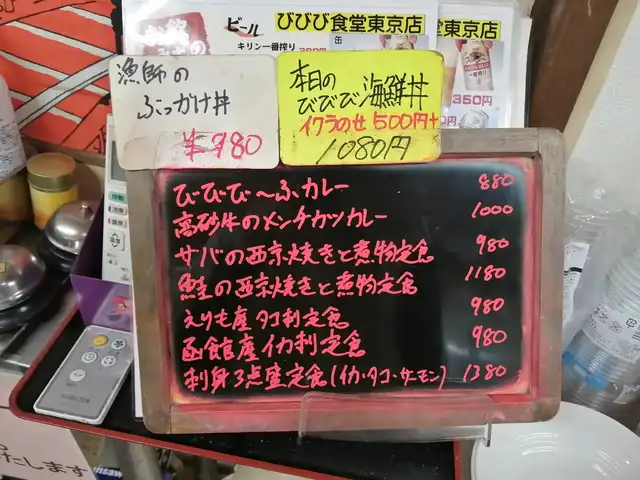 ビール
びびび食堂東京店
東京店
キリン一番搾り
缶
350円
漁師の
ぶっかけ丼
¥980
本日の
びびび海鮮丼
イクラのせ500円+
1080円
びびび〜ふカレー 880
高砂牛のメンチカツカレー 1000
サバの西京焼きと煮物定食 980
鮭の西京焼きと煮物定食 1180
えりも産タコ刺定食 980
函館産イカ刺定食 980
刺身3点盛定食(イカ・タコ・サーモン) 1380
たします